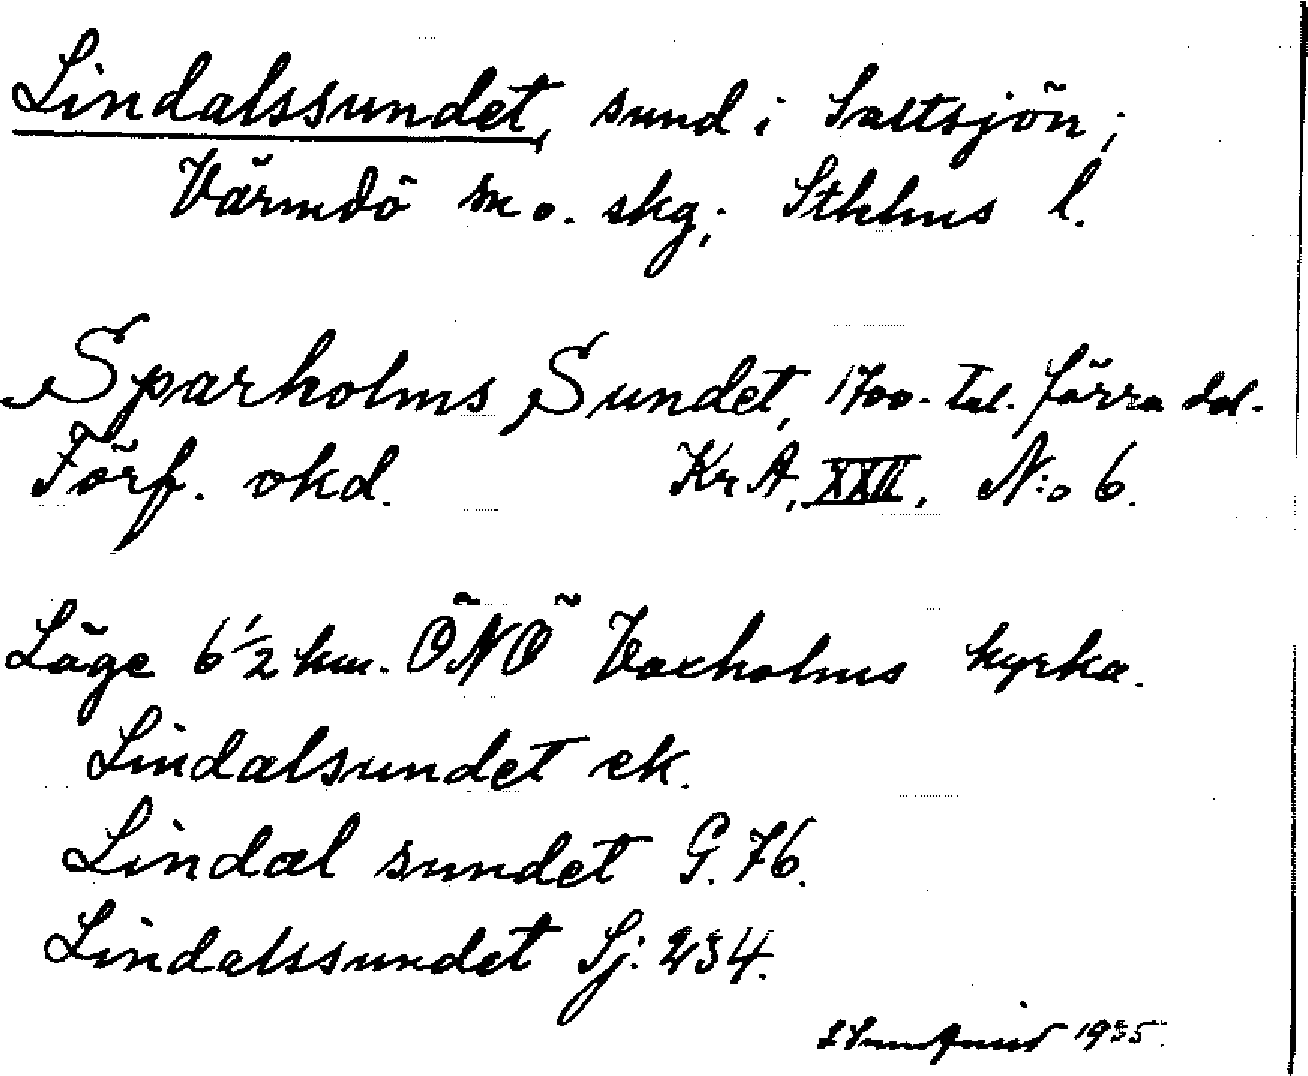 Lindalssundet, sund i Saltsjön;
Värmdö sn o. skg; Sthlms l.
Sparholms Sundet, 1700-tal. förra del.
Förf. okd. KrA, XXII, N:o 6.
Läge 6 1/2 km. ÖNÖ Vaxholms kyrka.
Lindalsundet ek.
Lindal sundet G. 76.
Lindalssundet Sj: 234.
1935.